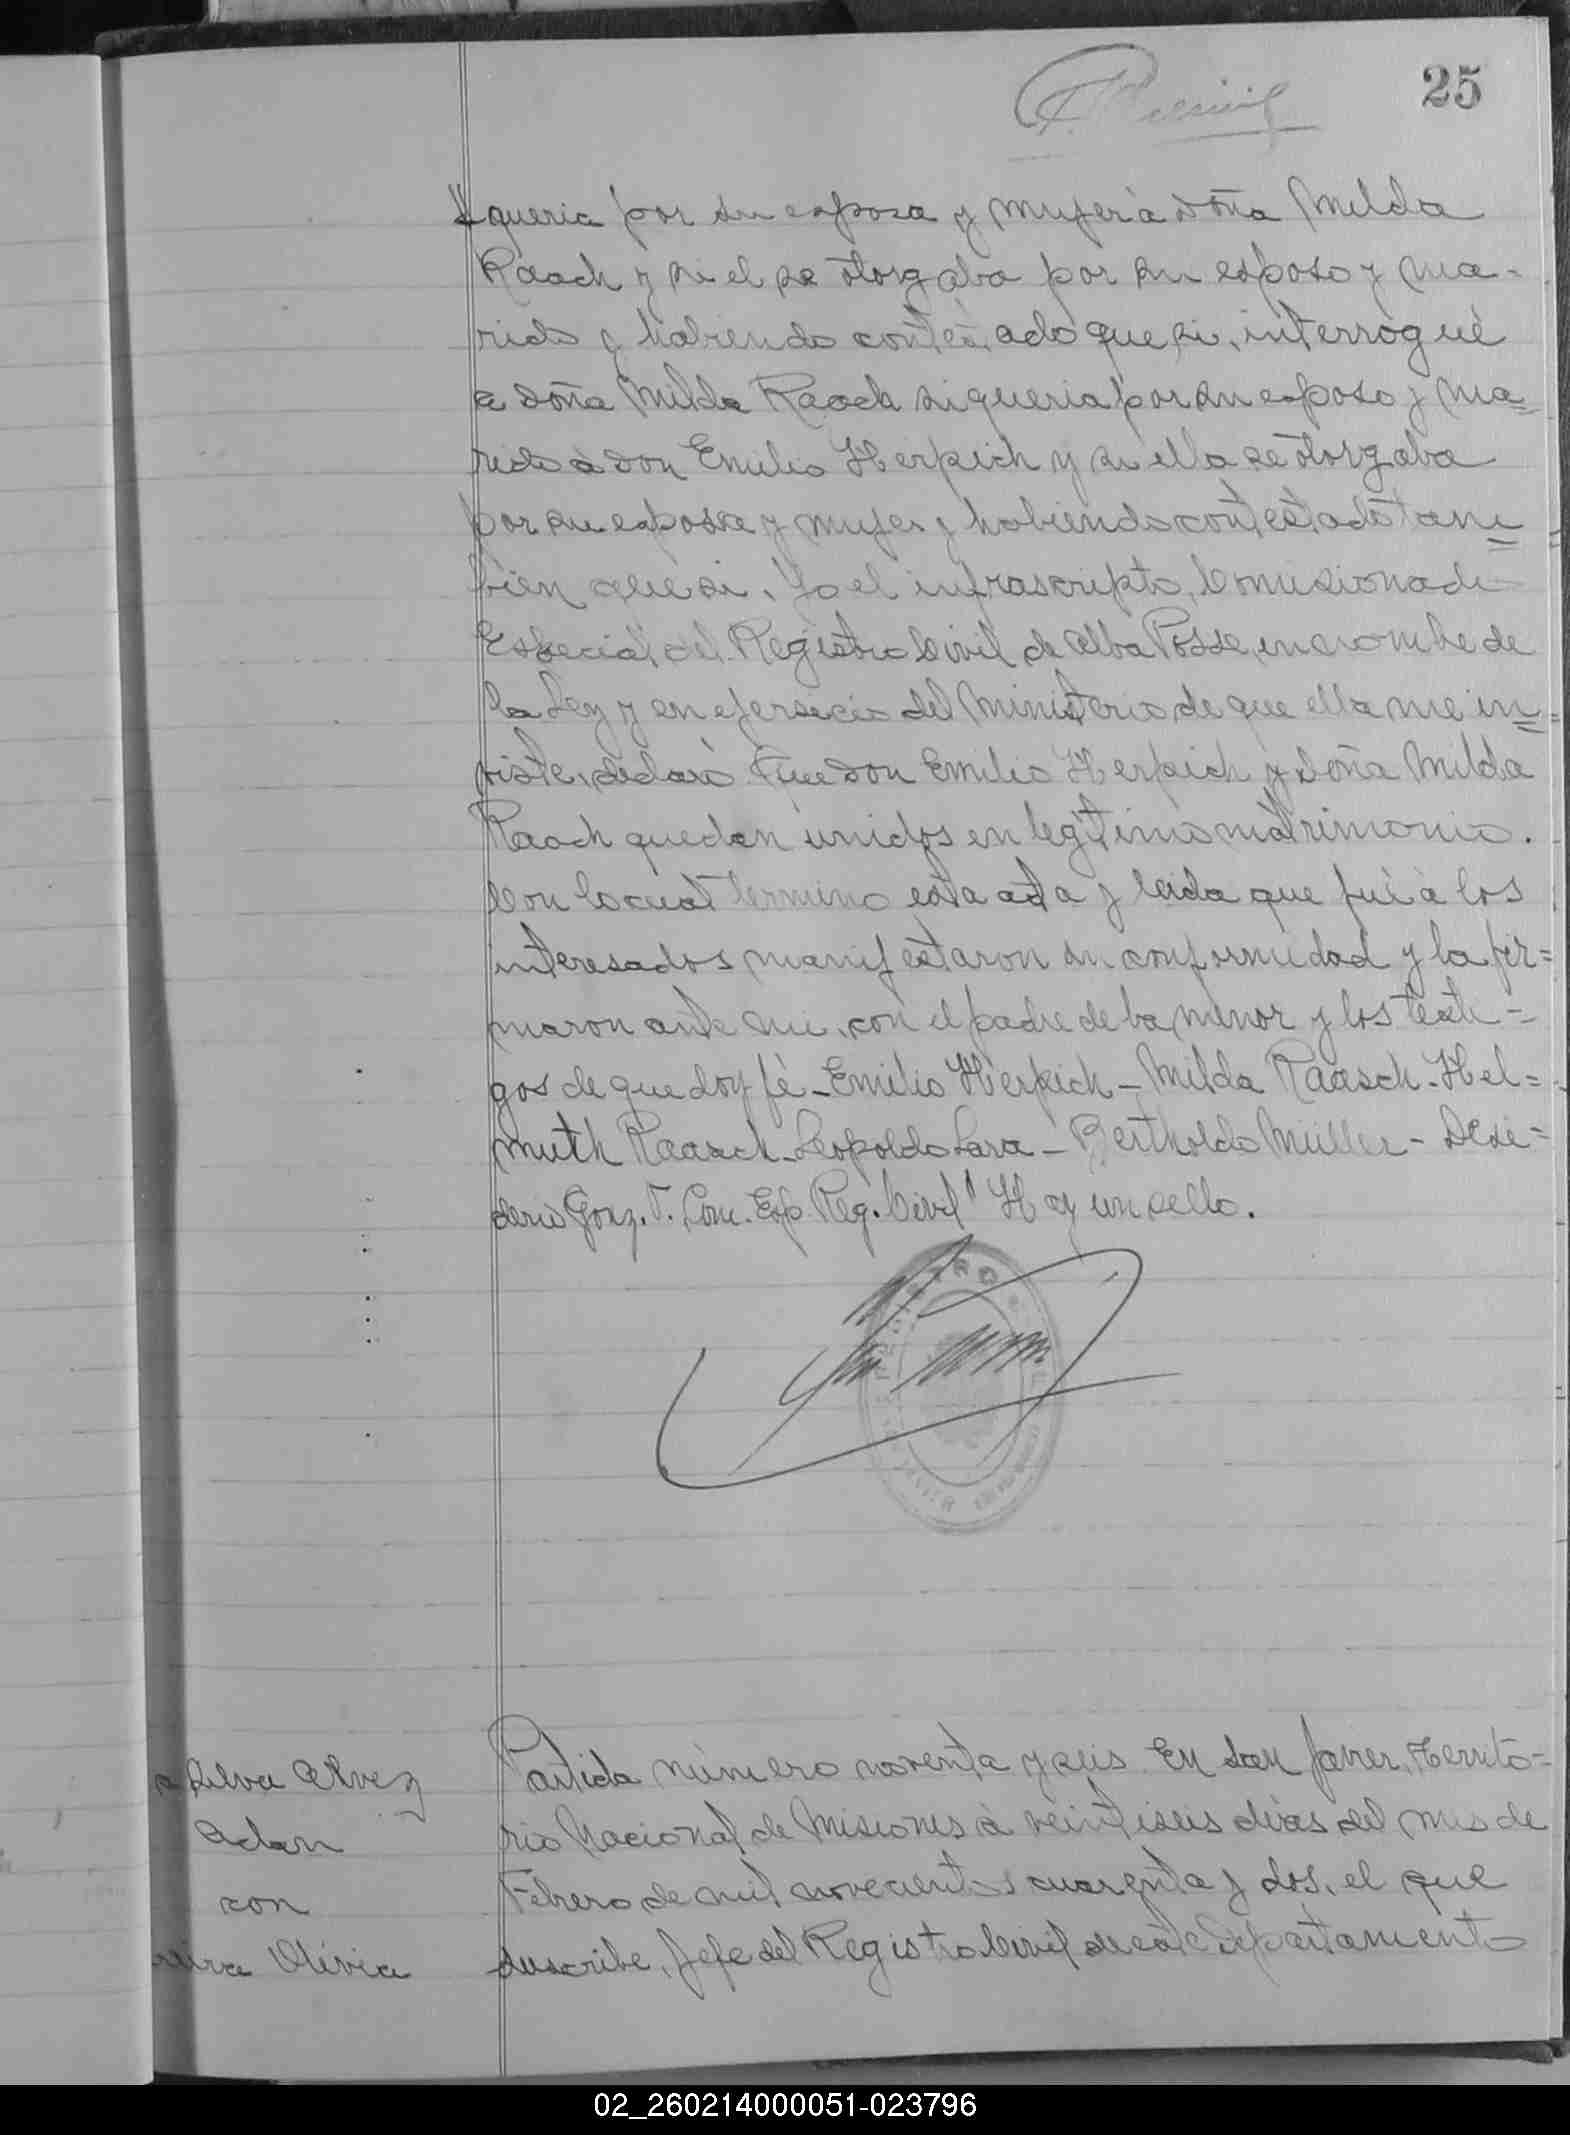 25
queria por su esposa y mujer à doña Milda
Raach y si el se otorgaba por su esposo y ma-
rido y habiendo contestado que si, interroguè
a doña Milda Raach si queria por su esposo y ma=
rido à don Emilio Herpich y si ella se otorgaba
por su esposa y mujer y habiendo contestado tam=
bien que si, Yo el infrascripto, Comisionado
Especial del Registro Civil de Alba Posse, en nombre de
la Ley y en ejersicio del Ministerio de que ella me in=
viste, declaro Que don Emilio Herpich y doña Milda
Raach quedan unidos en legitimo matrimonio.
Con lo cual termino esta acta y leida que fuè à los
interesados manifestaron su conformidad y la fir=
maron ante mi, con el padre de la menor y los testi=
gos de que doy fè_Emilio Herpich_Milda Raasch_Hel=
muth Raasch_Leopoldo Lara_Bertholdo Müller_Desi=
derio Gonz. V. Com. Esp. Reg. Civil" Hay un sello.
Silva Alvez
Adan
con
Olivia
Partida nùmero noventa y seis. En San Javier, Territo=
rio Nacional de Misiones à veintiseis dias del mes de
Febrero de mil novecientos cuarenta y dos, el que
suscribe, Jefe del Registro Civil de este Departamento
02_260214000051-023796